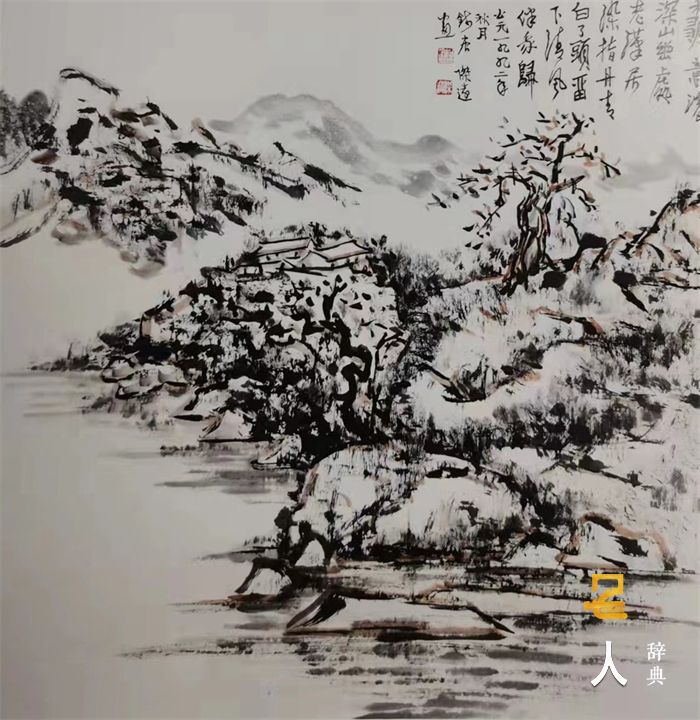 深山幽處
老漢居
染指丹青
白了頭留
下清風
伴我歸
公元一九九二年
秋月
錢唐
画
名人
辞典